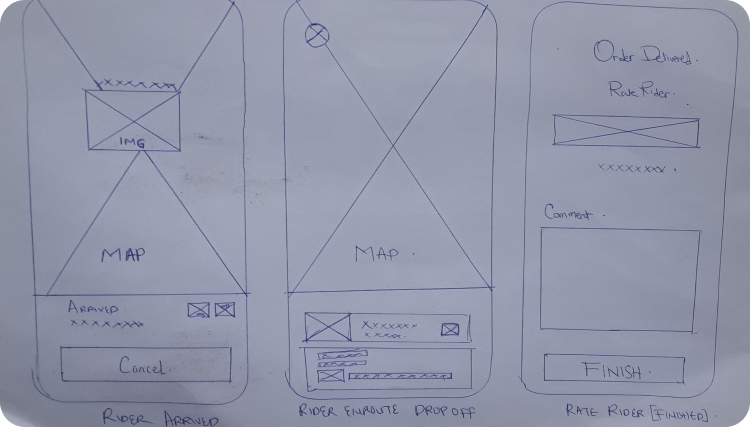 xxxxxxxx
IMG
MAP
ARRIVED
xxxxxxxxx
Cancel.
RIDER ARRIVED
MAP.
xxxxxxx
xxxxx.
xxxxxxxxxxxx
RIDER ENROUTE DROP OFF
Order Delivered.
Rate Rider.
xxxxxxxx.
Comment.
FINISH.
RATE RIDER [FINISHED].